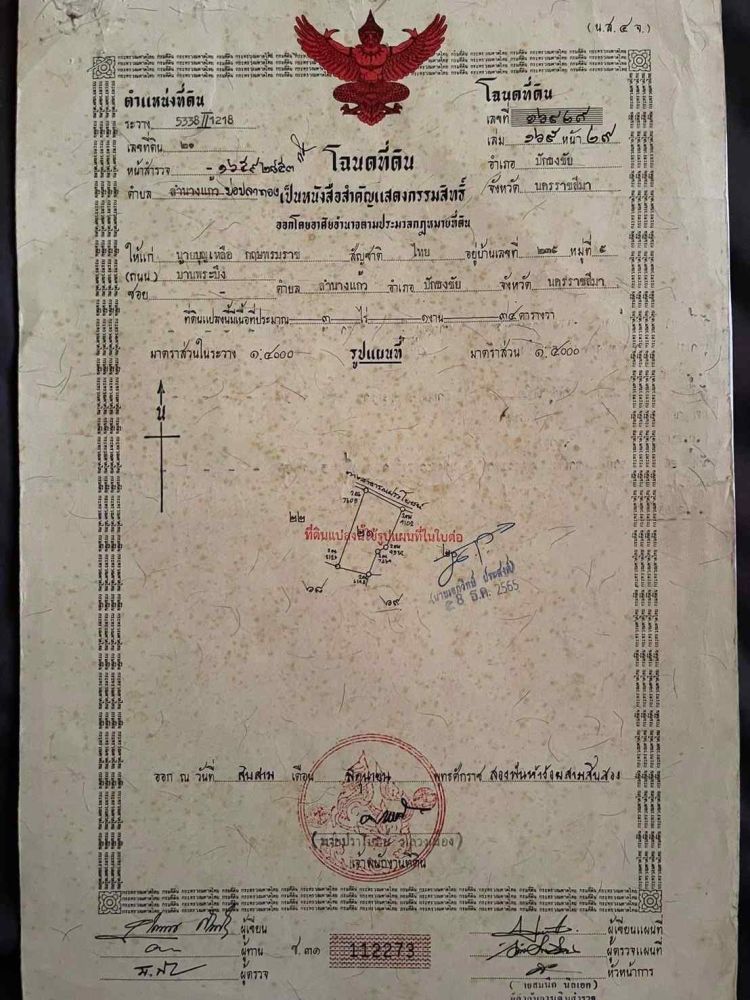 (น.ส.๔ จ.)
ตำแหน่งที่ดิน
ระวาง 5338 II 1218
เลขที่ดิน ๒๑
หน้าสำรวจ
ตำบล ลำนางแก้ว บ่อปลาทอง
โฉนดที่ดิน
เลขที่ ๑๖๙๒๙
เล่ม ๑๖๙ หน้า ๒๙
อำเภอ ปักธงชัย
จังหวัด นครราชสีมา
โฉนดที่ดิน
เป็นหนังสือสำคัญแสดงกรรมสิทธิ์
ออกโดยอาศัยอำนาจตามประมวลกฎหมายที่ดิน
ให้แก่ นายบุญเหลือ สัญชาติ ไทย อยู่บ้านเลขที่ ๒๓๕ หมู่ที่ ๕
(ถนน) บ้านพระบึง
ซอย - ตำบล ลำนางแก้ว อำเภอ ปักธงชัย จังหวัด นครราชสีมา
ที่ดินแปลงนี้มีเนื้อที่ประมาณ ๓ ไร่ ๑ งาน ๓๔ ตารางวา
มาตราส่วนในระวาง ๑:๔๐๐๐ รูปแผนที่ มาตราส่วน ๑:๕๐๐๐
น
ทางสาธารณประโยชน์
๒๒
๒๑
ที่ดินแปลงนี้ใช้รูปแผนที่ในใบต่อ
๖๘
๖๙
๒๘ ธ.ค. 2565
ออก ณ วันที่ สิบสาม เดือน มิถุนายน พุทธศักราช สองพันห้าร้อยสามสิบสอง
เจ้าพนักงานที่ดิน
ผู้เขียน
ผู้ทาน
ผู้ตรวจ
ช.๓๑ 112273
ผู้เขียนแผนที่
ผู้ตรวจแผนที่
หัวหน้าการ